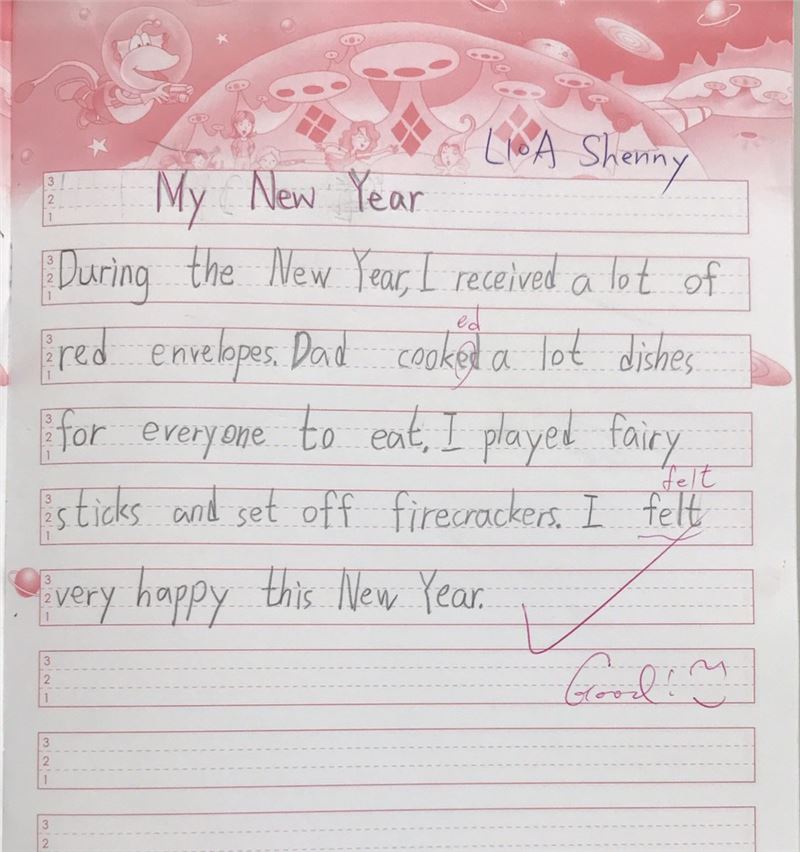 L10A Shenny
My New Year
During the New Year, I received a lot of
ed
red envelopes. Dad cooked a lot dishes
for everyone to eat. I played fairy
felt
sticks and set off firecrackers. I felt
very happy this New Year.
Good!